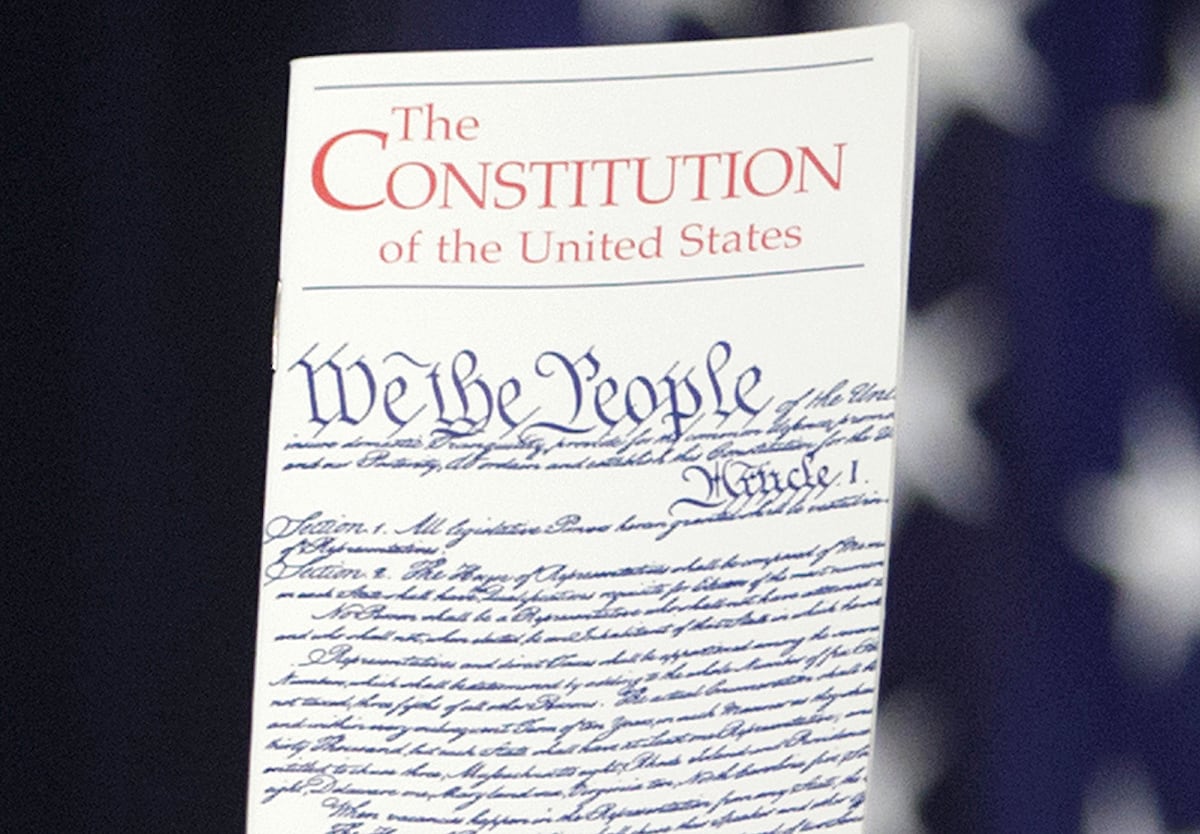 The
CONSTITUTION
of the United States
We the People of the Uni
insure domestic Tranquility, provide for the common defence, promo
and our Posterity, do ordain and establish this Constitution for the U
Article. I.
Section. 1. All legislative Powers herein granted shall be vested in
of Representatives.
Section. 2. The House of Representatives shall be composed of Mem
in each State shall have Qualifications requisite for Electors of the most numerou
No Person shall be a Representative who shall not have attained t
and who shall not, when elected, be an Inhabitant of that State in which he
Representatives and direct Taxes shall be apportioned among the severa
Numbers, which shall be determined by adding to the whole Number of free
not taxed, three fifths of all other Persons. The actual Enumeration shall be
and within every subsequent Term of ten Years, in such Manner as they shall
thirty Thousand, but each State shall have at Least one Representative; and
entitled to chuse three, Massachusetts eight, Rhode Island and Providence
eight, Delaware one, Maryland six, Virginia ten, North Carolina five,
When vacancies happen in the Representation from any State, the
The shall chuse their Speaker and other